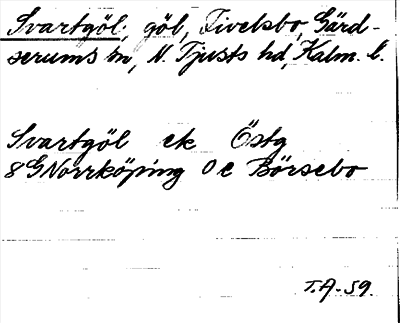 Svartgöl, göl, Fivelsbo, Gärd-
serums sn, N. Tjusts hd, Kalm. l.
Svartgöl ek Östg
8G Norrköping 0 e Börsebo
T.A-59.